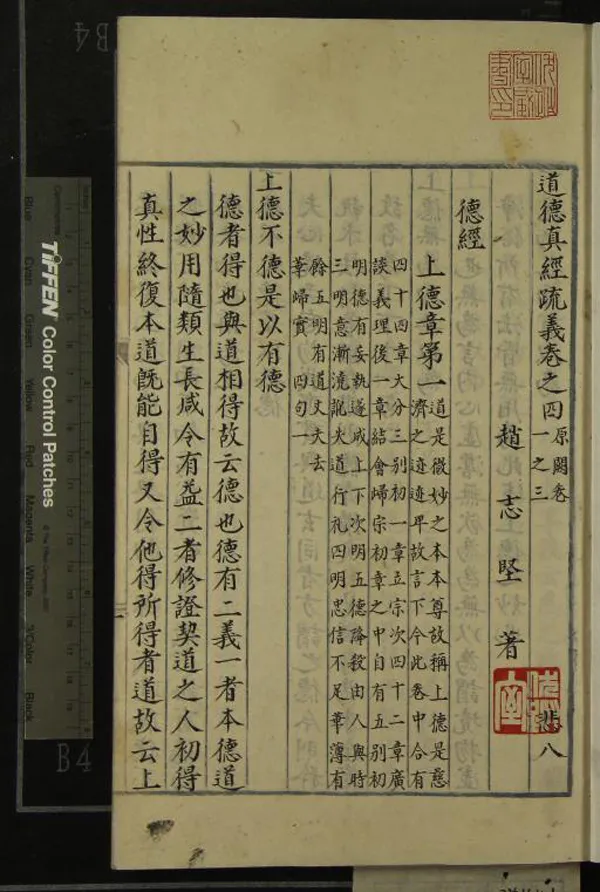 道德真經疏義卷之四
原闕卷
一之三
悲八
趙志堅著
德經
上德章第一
道是微妙之本本尊故稱上德是慈
濟之迹迹卑故言下今此卷中合有
四十四章大分三別初一章立宗次四十二章廣
談義理後一章結會歸宗初章之中自有五別初
明德有妄執遂成上下次明五德降殺由人與時
三明意漸澆訛失道行礼四明忠信不足華薄有
餘五明有道丈夫去
華歸實 四句一
上德不德是以有德
德者得也與道相得故云德也德有二義一者本德道
之妙用隨類生長咸令有益二者修證契道之人初得
真性終復本道既能自得又令他得所得者道故云上
TIFFEN Color Control Patches
Blue Cyan Green Yellow Red Magenta White 3/Color Black
B4
B4